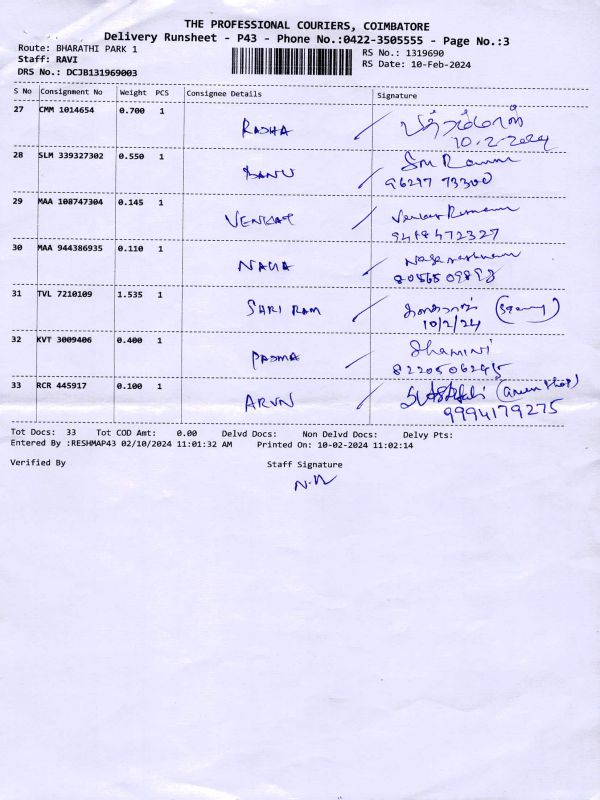 THE PROFESSIONAL COURIERS, COIMBATORE
Delivery Runsheet - P43 - Phone No.:0422-3505555 - Page No.:3
Route: BHARATHI PARK 1
RS No.: 1319690
Staff: RAVI
RS Date: 10-Feb-2024
DRS No.: DCJB131969003
S No Consignment No Weight PCS Consignee Details Signature
27 CMM 1014654 0.700 1
RADHA
10.2.2024
28 SLM 339327302 0.550 1
BANU
29 MAA 108747304 0.145 1
VENKAT
30 MAA 944386935 0.110 1
NAGA
31 TVL 7210109 1.535 1
SHRI RAM
10/2/24
32 KVT 3009406 0.400 1
PADMA
dhamini
82205 06245
33 RCR 445917 0.100 1
ARUN
9994179275
Tot Docs: 33 Tot COD Amt: 0.00 Delvd Docs: Non Delvd Docs: Delvy Pts:
Entered By :RESHMAP43 02/10/2024 11:01:32 AM Printed On: 10-02-2024 11:02:14
Verified By Staff Signature